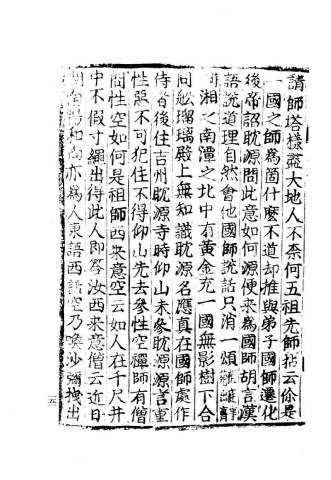 請師塔樣盡大地人不柰何五祖先師拈云你是
一國之師為箇什麼不道却推與弟子國師遷化
後帝詔耽源問此意如何源便來為國師胡言漢
語說道理自然會他國師說話只消一頌
湘之南潭之北中有黃金充一國無影樹下合
同舡瑠璃殿上無知識耽源名應真在國師處作
侍者後住吉州耽源寺時仰山來參耽源源言重
性惡不可犯住不得仰山先去參性空禪師有僧
問性空如何是祖師西來意空云如人在千尺井
中不假寸繩出得此人即答汝西來意僧云近日
暢和尚亦為人東語西話空乃喚沙彌拽出